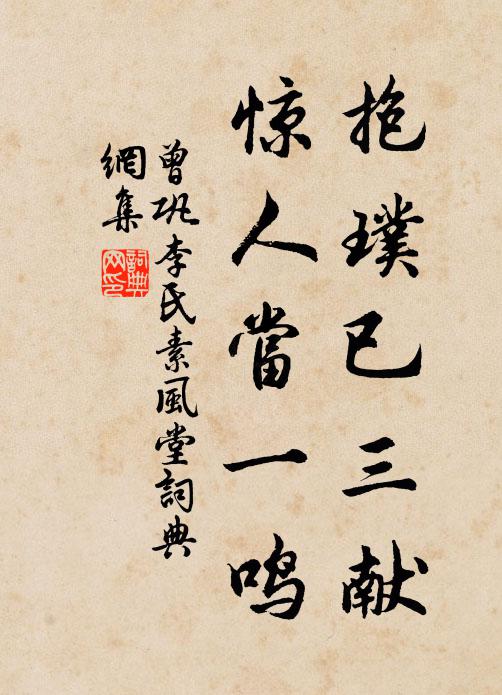 抱璞已三献
惊人當一鸣
曾巩李氏素風堂詞典
網集
詞典網印